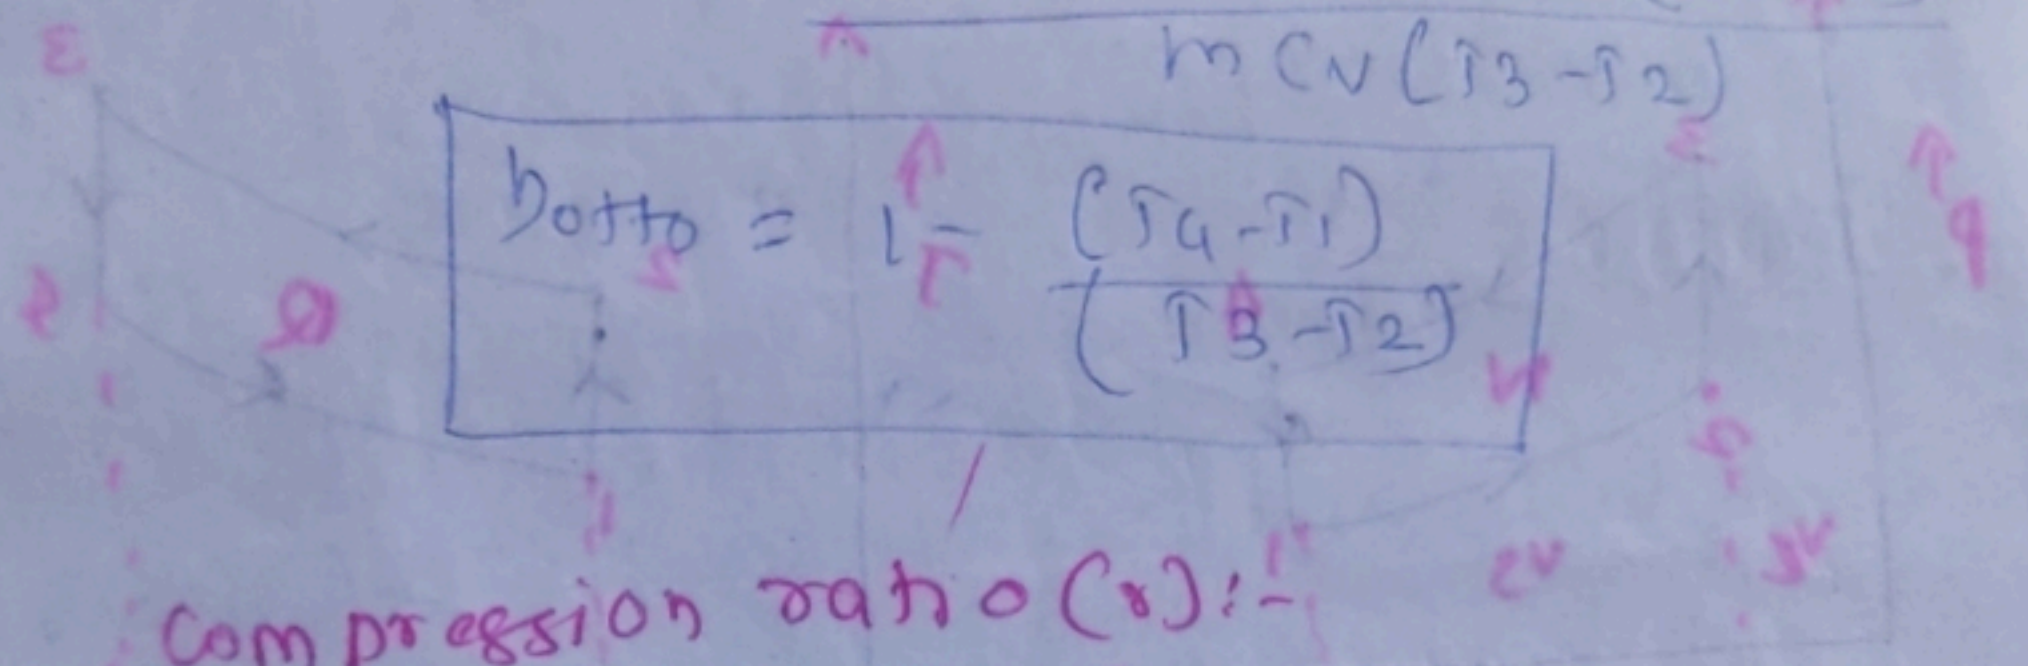 m Cv (T3 - T2)
ηotto = 1 - (T4 - T1) / (T3 - T2)
Compression ratio (r) :-